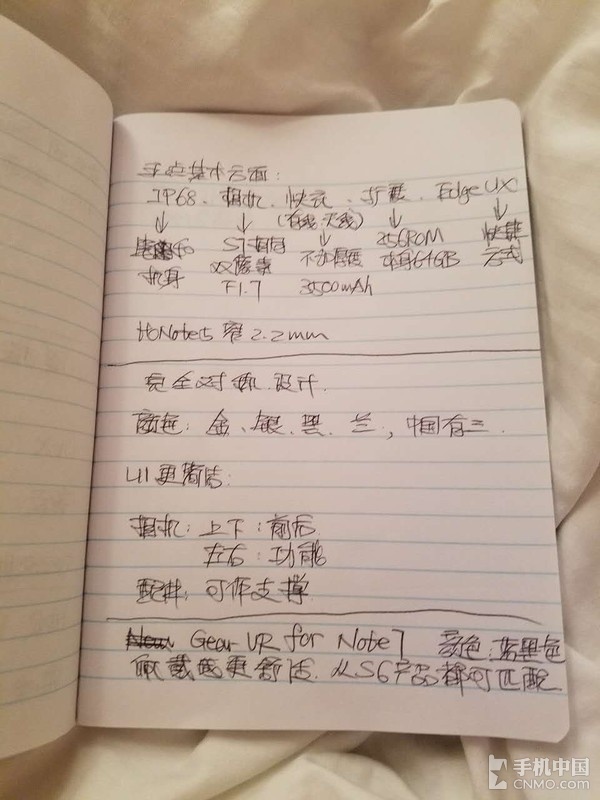 IP68、相机、快充、扩展、Edge UX
(有线、无线)
机身
S7相同
双像素
F1.7
不加厚度
3500mAh
256ROM
本身64GB
快捷
方式
比Note5窄2.2mm
完全对称设计.
颜色：金、银、黑、兰，中国有三.
UI更简洁：
相机：上下：前后
左右：功能
配件：可作支撑
Gear VR for Note7 颜色：蓝黑色
佩戴的更舒适.从S6产品都可匹配
手机中国
CNMO.COM